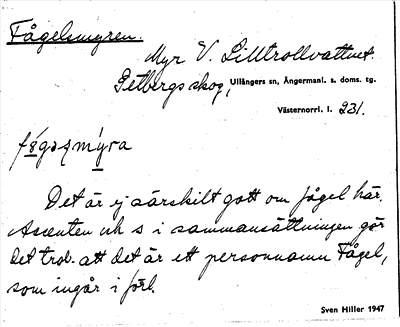 Fågelsmyren.
Myr V. Lilltrollvattnet.
Getbergsskog, Ullångers sn, Ångermanl. s. doms. tg.
Västernorrl. l. 231.
mýra
Det är ej särskilt gott om fågel här.
Accenten och s i sammansättningen gör
det trol. att det är ett personnamn Fågel,
som ingår i förl.
Sven Hiller 1947